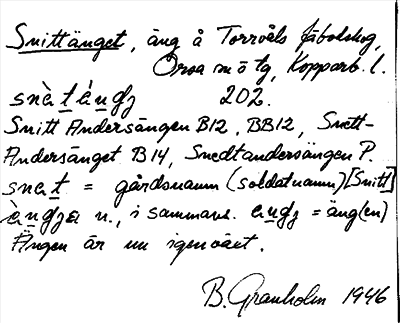 Snittänget, äng å Torrvåls fäbodskog,
Orsa sn ö tg, Kopparb. l.
snètèndz 202.
Snitt Andersängen B12, BB12, Snett-
Andersänget B14, Snedtandersängen P.
snet = gårdsnamn (soldatnamn) [Snitt]
n., i sammans. = äng(en)
Ängen är nu igenväxt.
B. Granholm 1946